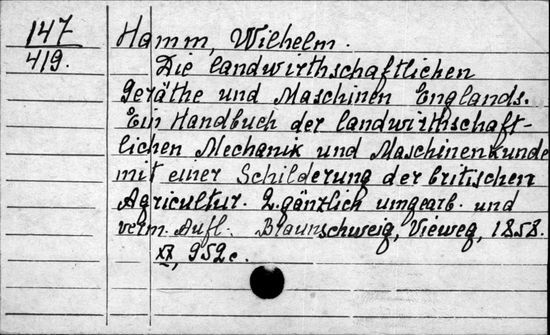 147
419.
Hamm, Wilhelm.
Die landwirthschaftlichen
Geräthe und Maschinen Englands.
Ein Handbuch der landwirthschaft-
lichen Mechanik und Maschinenkunde
mit einer Schilderung der britischen
Agricultur. 2. gänzlich umgearb. und
verm. Aufl. Braunschweig, Vieweg, 1858.
XX, 952 c.